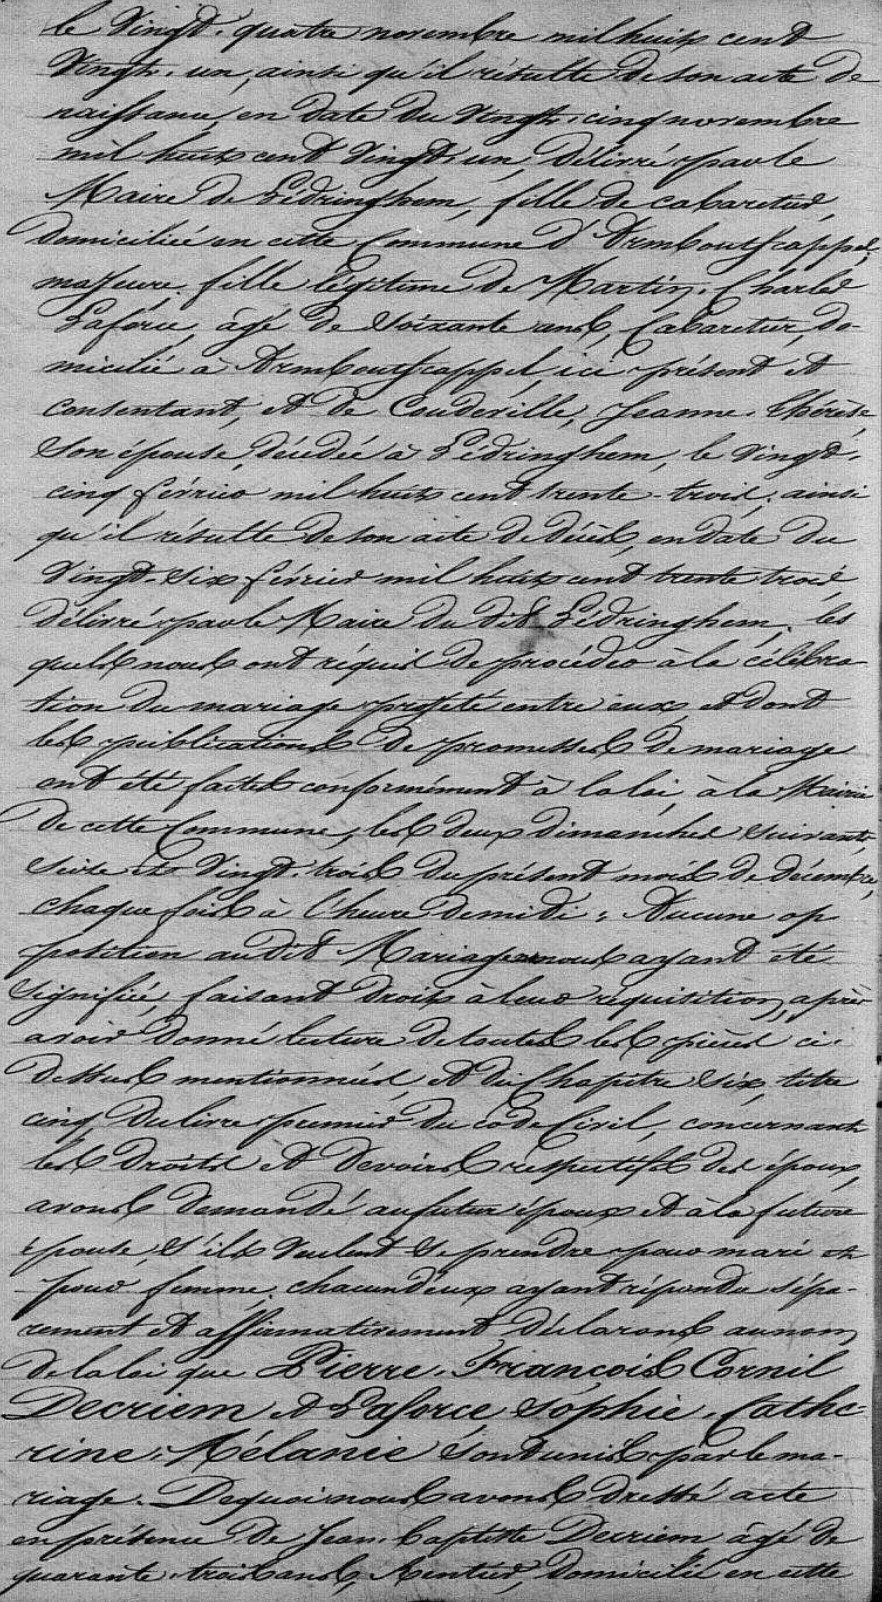 le Vingt-quatre novembre mil huit cent
Vingt-un, ainsi qu'il résulte de son acte de
naissance, en date du Vingt-cinq novembre
mil huit cent Vingt-un, délivré par le
Maire de Lédringhem, fille de cabaretier,
domiciliée en cette Commune d'Armboutscappel,
majeure, fille légitime de Martin-Charles
Laforce, âgé de Soixante ans, Cabaretier, do-
micilié à Armboutscappel, ici présent et
consentant, et de Coudeville, Jeanne-Thérèse,
Son épouse, décédée à Lédringhem, le Vingt-
cinq février mil huit cent trente-trois, ainsi
qu'il résulte de son acte de décès, en date du
Vingt-Six février mil huit cent trente trois,
délivré par le Maire du dit Lédringhem, les
quels nous ont réquis de procéder à la célébra-
tion du mariage projeté entre eux, et dont
les publications de promesses de mariage
ont été faites conformément à la loi, à la Mairie
de cette Commune, les deux dimanches suivants,
seize et Vingt-trois du présent mois de décembre,
chaque fois à l'heure de midi; Aucune op
position au dit Mariage nous ayant été
Signifiée, faisant droit à leur requisition, après
avoir donné lecture de toutes les pièces ci-
dessus mentionnées, et du Chapitre Six, titre
cinq du livre premier du code Civil, concernant
les droits et devoirs respectifs des époux,
avons demandé au futur époux et à la future
épouse, S'ils veulent Se prendre pour mari et
pour femme, chacun d'eux ayant répondu sépa-
rement et affirmativement, déclarons au nom
de la loi que Pierre-François Cornil
Decriem et Laforce Sophie-Cathe-
rine-Mélanie Sont unis par le ma-
riage. De quoi nous avons dressé acte
en présence de Jean-Baptiste Decriem âgé de
quarante-trois ans, Rentier, domicilié en cette